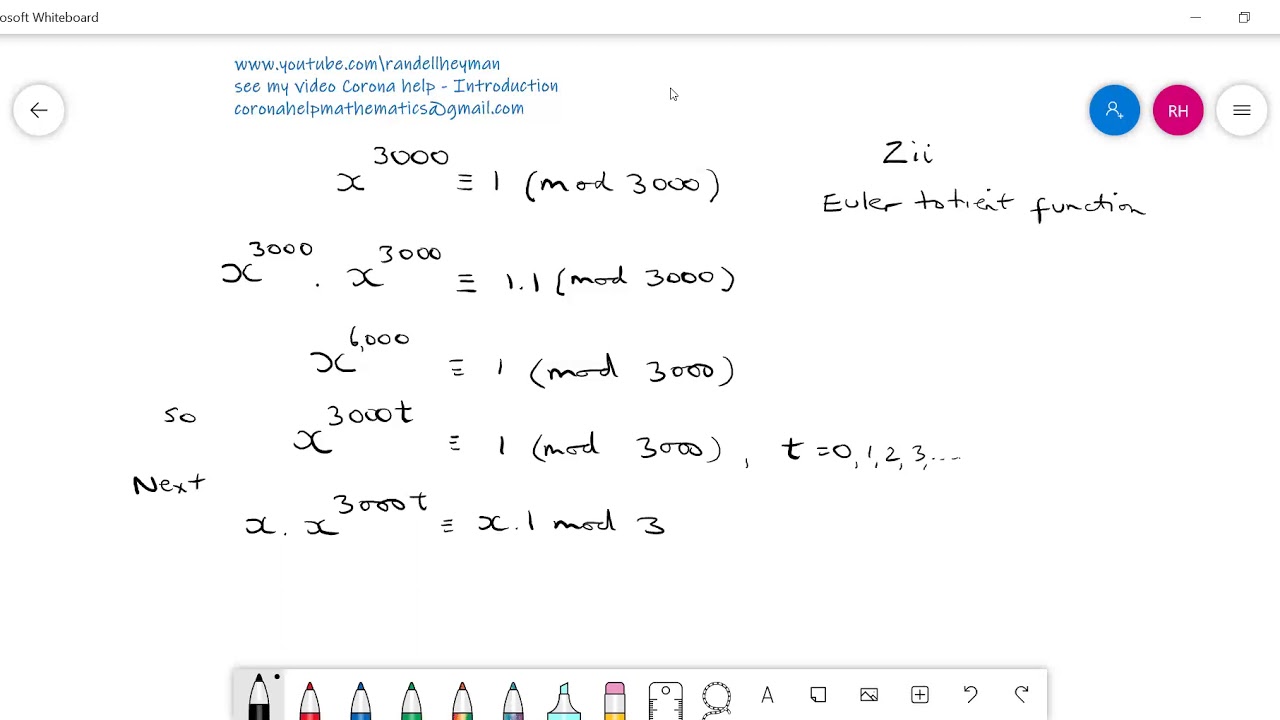 osoft Whiteboard
www.youtube.com\randellheyman
see my video Corona help - Introduction
coronahelpmathematics@gmail.com
RH
x^3000 ≡ 1 (mod 3000)
Zii
Euler totient function
x^3000 . x^3000 ≡ 1.1 (mod 3000)
x^6,000 ≡ 1 (mod 3000)
so x^3000t ≡ 1 (mod 3000), t=0,1,2,3,....
Next
x . x^3000t ≡ x.1 mod 3
A